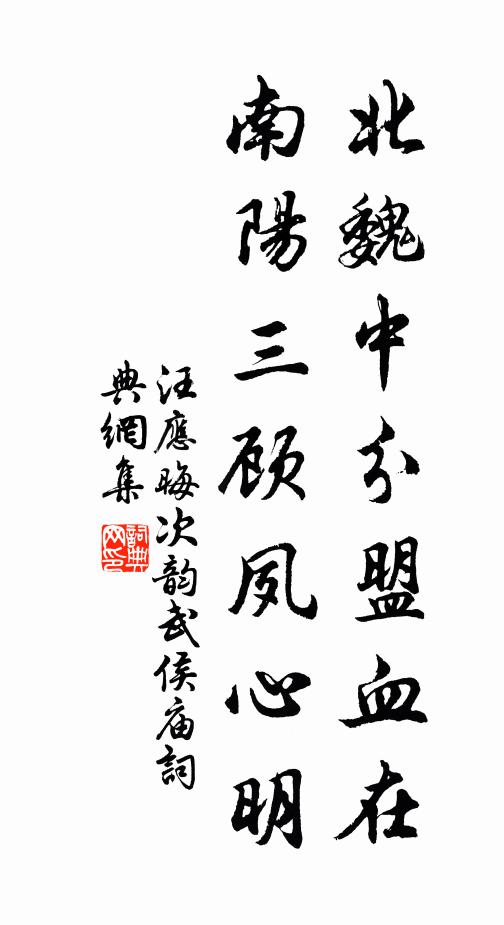 北魏中分盟血在
南陽三顾夙心明
汪應晦次韵武侯庙詞
典網集
詞典网印